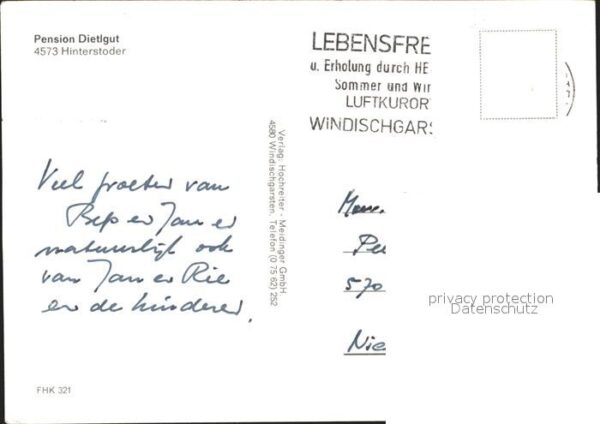 Pension Dietlgut
4573 Hinterstoder
LEBENSFRE
u. Erholung durch HE
Sommer und Wi
LUFTKUROR
WINDISCHGARS
Verlag: Hochreiter - Meidinger GmbH
4580 Windischgarsten, Telefon (0 75 62) 252
Veel groeten van
Bep en Jan en
natuurlijk ook
van Jan en Rie
en de kinderen.
Pe
570
Nie
privacy protection
Datenschutz
FHK 321